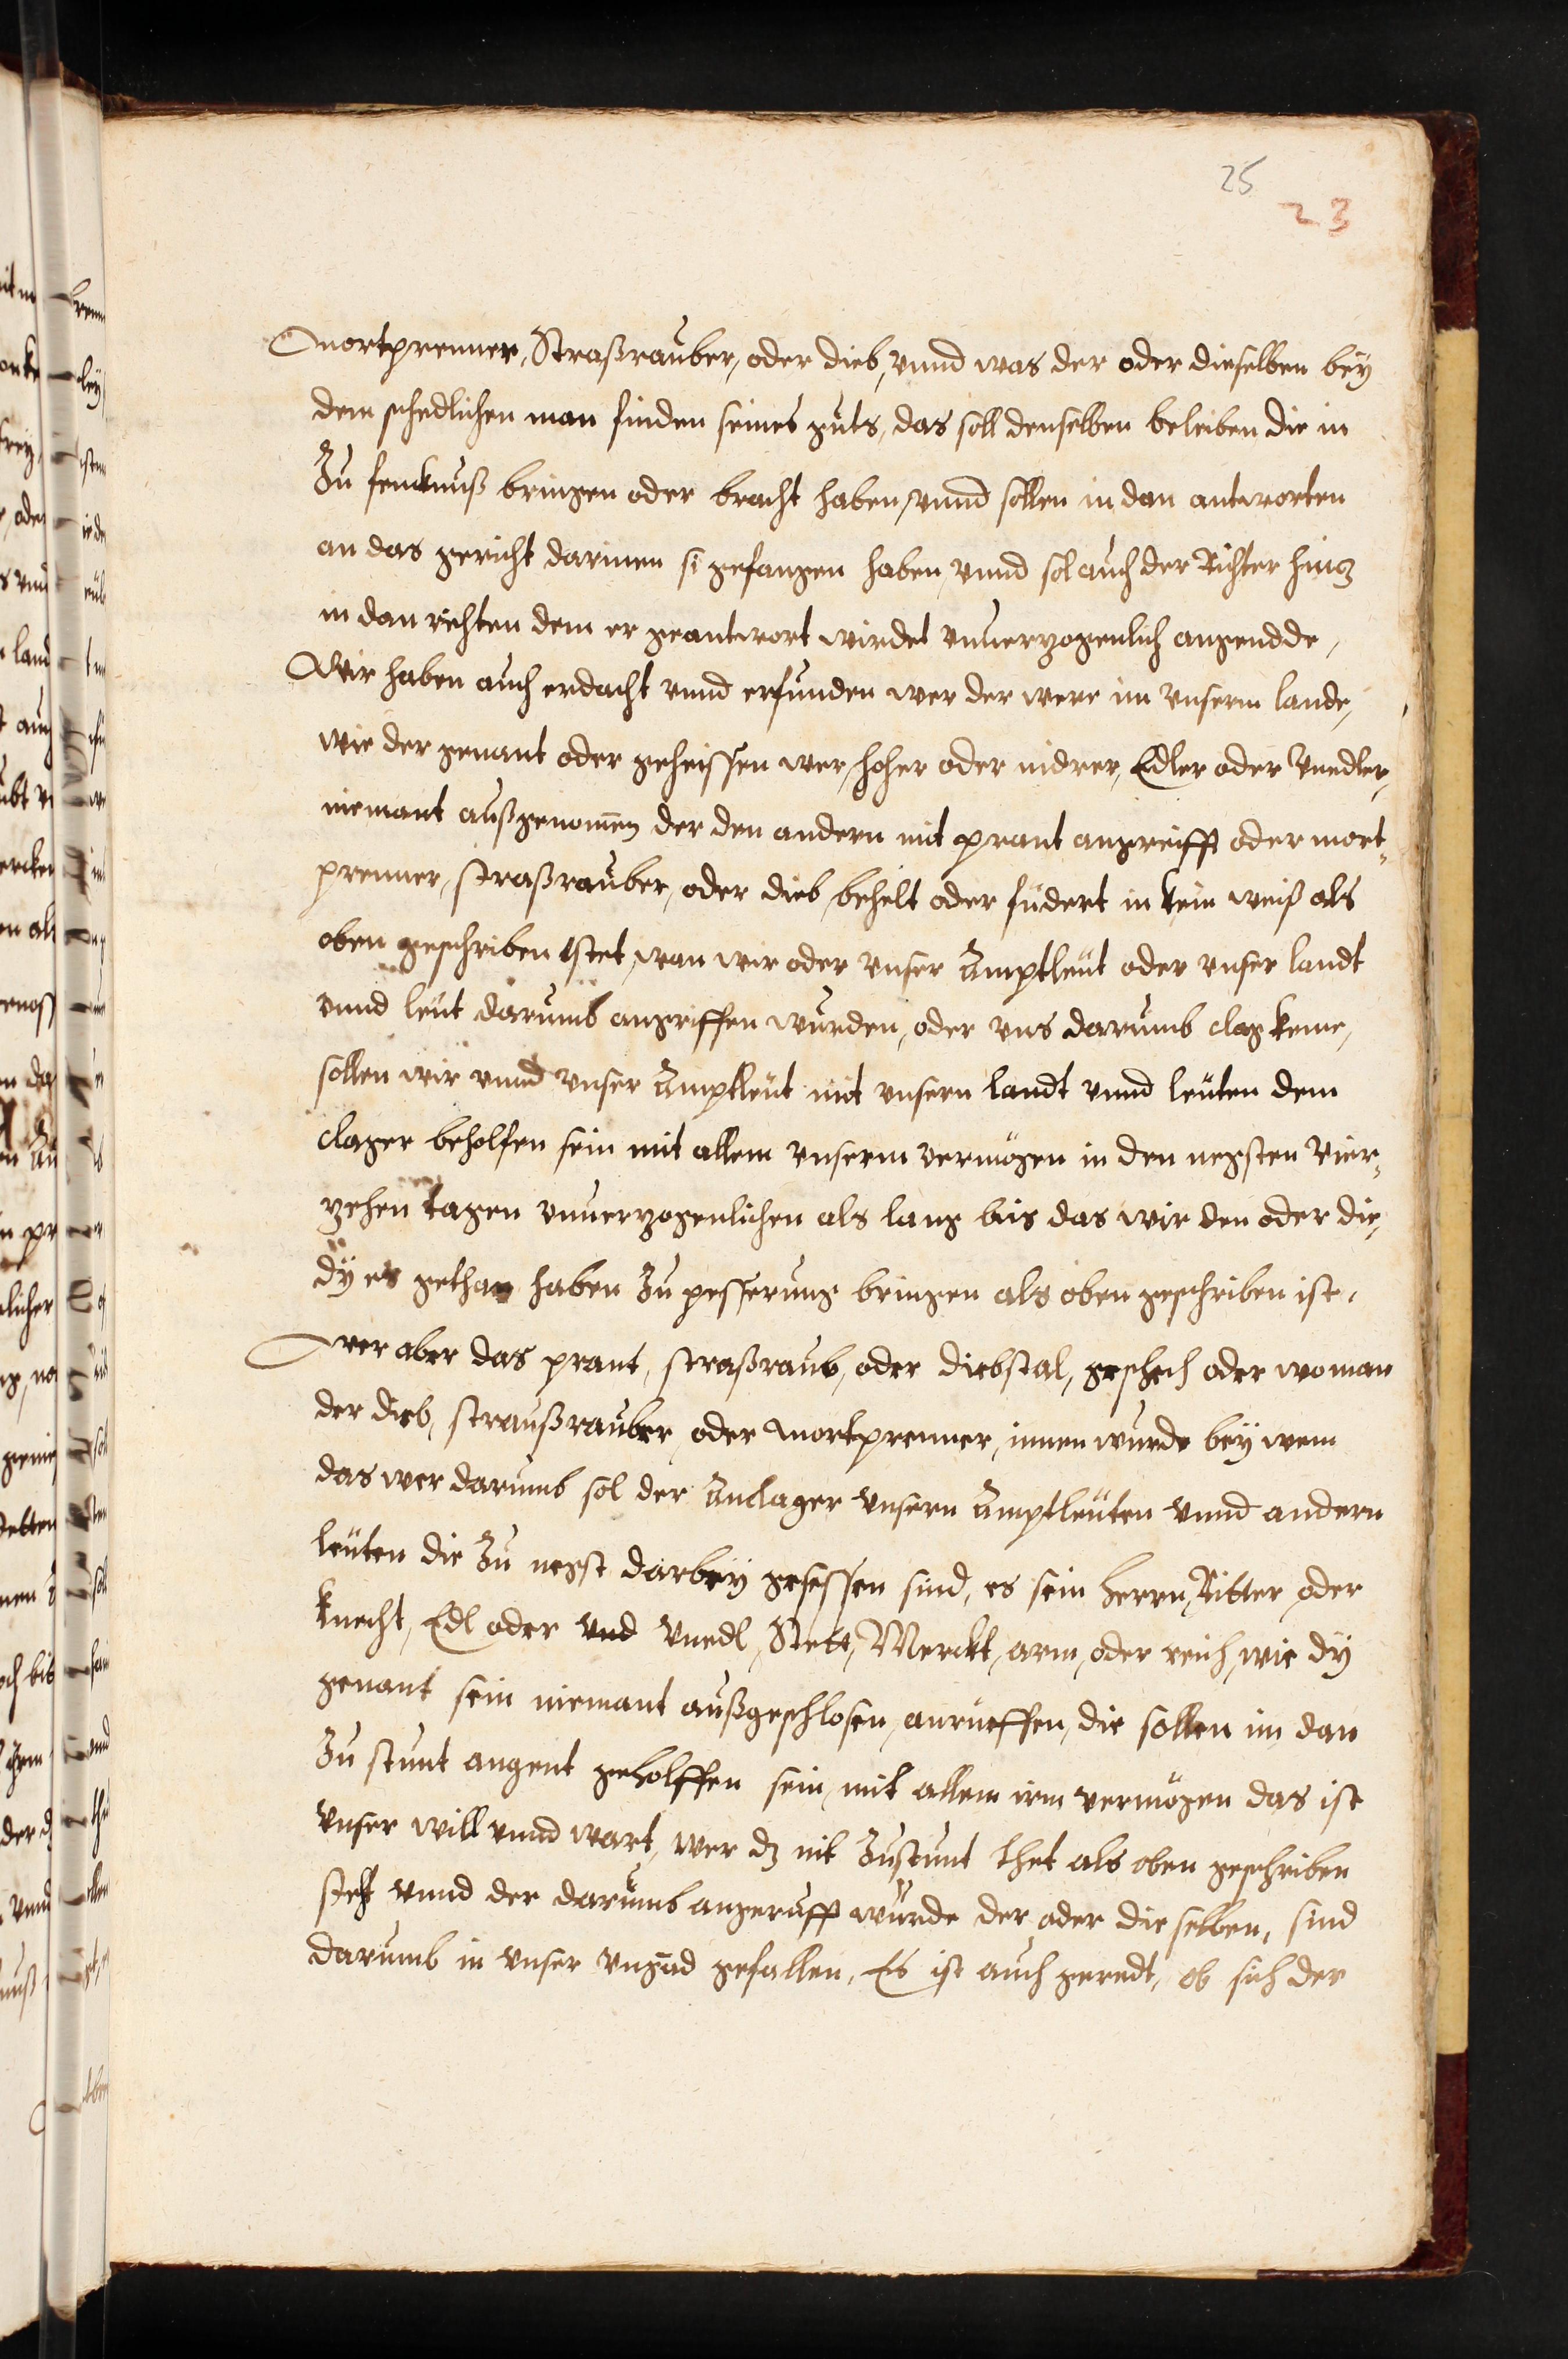 25
23
mortprenner, Straßrauber, oder dieb, vnnd was der oder dieselben bey
dem schedlichen man finden seines guts, das soll denselben beleiben die in
Zu fencknuß bringen oder bracht haben, vnnd sollen in dan antworten
an das gericht darinnen si gefangen haben, vnnd sol auch der Richter hincz
in dan richten dem er geantwort wirdet vnuerzogenlich angendde,
Wir haben auch erdacht vnnd erfunden wer der were im vnserm lande,
wie der genant oder geheissen wer, hoher oder nidrer, Edler oder Vnedler,
niemant außgenomen der den andern mit prant angreifft oder mort¬
prenner, straßrauber, oder dieb, behelt oder fudert in kein weiß als
oben geschriben stet, wan wir oder vnser Amptleüt oder vnser landt
vnnd leüt darumb angriffen wurden, oder vns darumb clag keme,
sollen wir vnnd vnser Amptleüt mit vnsern landt vnnd leüten dem
clager beholfen sein mit allem vnserm vermögen in den negsten vier¬
zehen tagen vnuerzogenlichen als lang bis das wir den oder die,
dÿ es gethan haben Zu pesserung bringen als oben geschriben ist,
wer aber das prant, straßraub, oder diebstal, geschech oder wo man
der dieb, straußrauber, oder mortprenner, innen wurde bey wem
das wer darumb sol der Anclager vnsern Amptleüten vnnd andern
leüten die Zu negst darbeÿ gesessen sind, es sein herrn, Ritter oder
knecht, Edl oder vnd vnedl, Stett, Merckt, arm, oder reich, wie dÿ
genant sein niemant außgeschlosen, anrueffen, die sollen im dan
Zu stunt angent geholffen sein, mit allem irm vermögen das ist
vnser will vnnd wart, wer dz nit Zustunt thet als oben geschriben
stet vnnd der darumb angerufft würde der oder die selben, sind
darumb in vnser vngnad gefallen, Es ist auch geredt, ob sich der